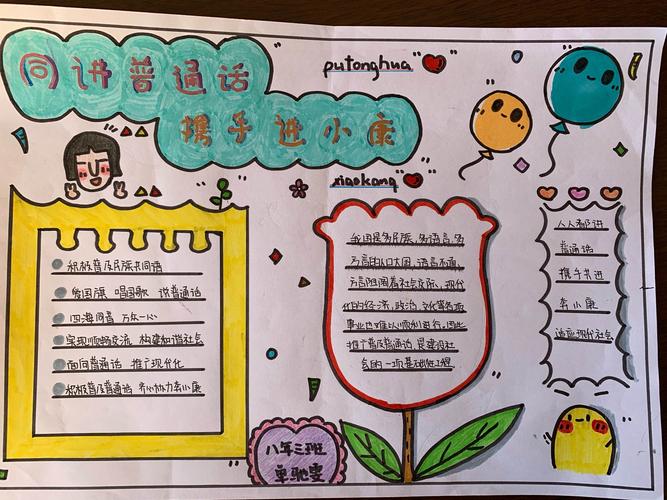 同讲普通话
携手进小康
putonghua
xiaokang
积极普及民族共同语
爱国旗 唱国歌 说普通话
四海同音 万众一心
实现顺畅交流 构建和谐社会
面向普通话 推广现代化
积极普及普通话 齐心协力奔小康
我国是多民族、多语言、多
方言的人口大国，语言不通，
方言阻隔着社会交际、现代
化的经济、政治、文化等各项
事业也难以顺利进行，因此
推广普及普通话，是建设社
会的一项基础性工程
人人都讲
普通话
携手共进
奔小康
适应现代社会
八年三班
单驰雯